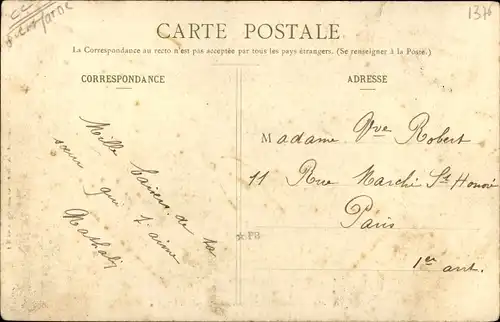 1376
CARTE POSTALE
La Correspondance au recto n'est pas acceptée par tous les pays étrangers. (Se renseigner à la Poste.)
CORRESPONDANCE
Mille baisers de ta
sœur qui t'aime
Nathaly
ADRESSE
Madame Vve Robert
11 Rue Marché St Honoré
Paris
★ PB
1er arrt.